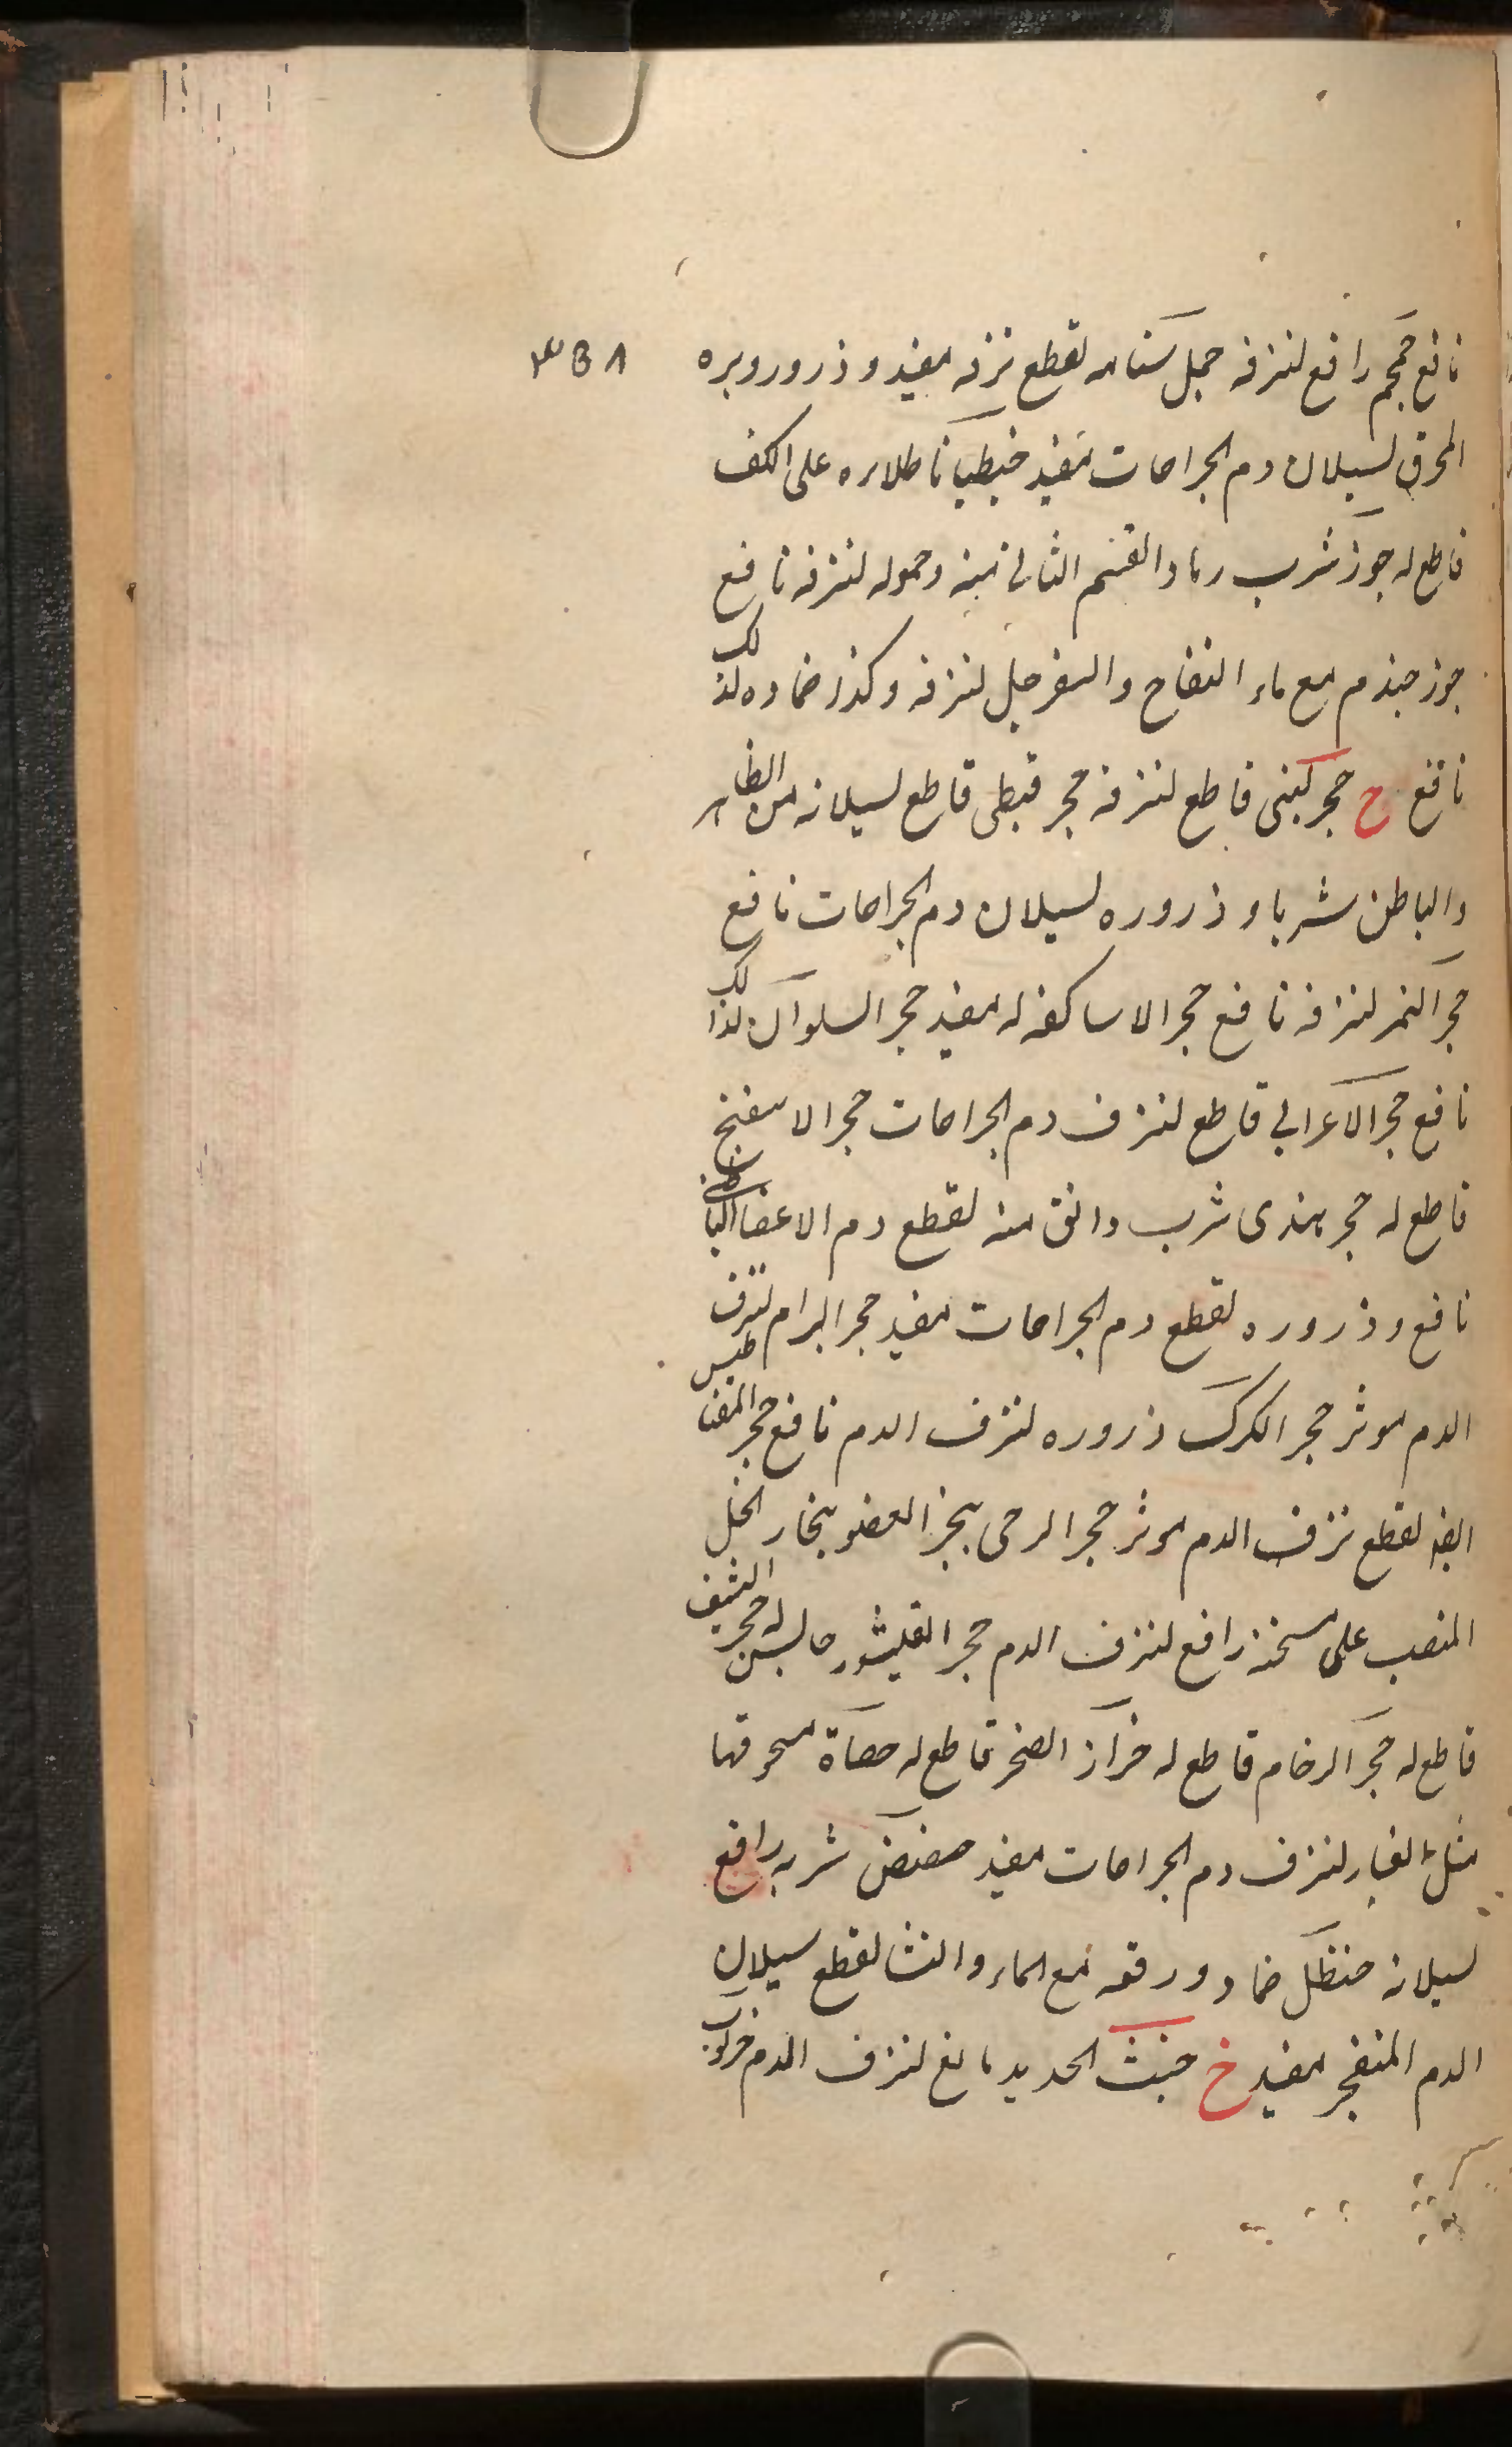 نافع جمجم رافع لنزفه جمل سنامه لقطع نزفه مفيد وذرور وبره ٣٥٨
المحرق لسيلان دم الجراحات مفيد جنطيانا طلاءه على الكف
قاطع له جوز شرب رماد القسم الثاني منه وحموله لنزفه نافع
جوز جندم مع ماء التفاح والسفرجل لنزفه وكذا ضماده لذلك
نافع ح حجر لبني قاطع لنزفه حجر قبطي قاطع لسيلانه من الظاهر
والباطن شربا وذروره لسيلان دم الجراحات نافع
حجر النمر لنزفه نافع حجر الاساكفه له مفيد حجر السلوان لذلك
نافع حجر الاعرابي قاطع لنزف دم الجراحات حجر الاسفنج
قاطع له حجر هندى شرب دانق منه لقطع دم الاعضا الباطنى
نافع وذروره لقطع دم الجراحات مفيد حجر البرام لنزف
الدم موثر حجر الكرك ذروره لنزف الدم نافع حجر المغناطيس
ايضا لقطع نزف الدم موثر حجر الرحى بخر العضو ببخار الخل
المنصب على سخنه رافع لنزف الدم حجر القيشور حابس له حجر الشيف
قاطع له حجر الرخام قاطع له خزاز الصخر قاطع له حصاة مسحوقها
مثل الغبار لنزف دم الجراحات مفيد حضض شربه رافع
لسيلانه حنظل ضماد ورقه مع الماء والنشا لقطع سيلان
الدم المنفجر مفيد خ خبث الحديد مانع لنزف الدم